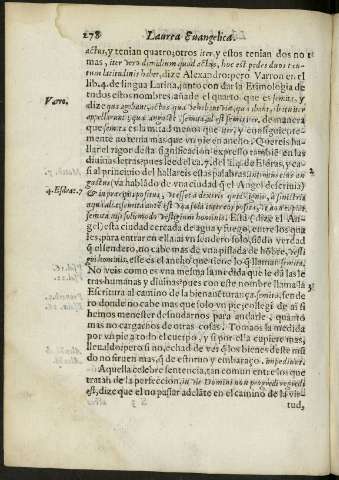 278 Laurea Euangelica.
actus, y tenian quatro; otros iter, y estos tenian dos no
mas, iter vero dimidium quàm actus, hoc est pedes duos tan-
tum latitudinis habet, dize Alexandro: pero Varron en el
lib. 4. de lingua Latina, junto con dar la Etimologia de
todos estos nombres, añade el quarto que es semita, y
Varro.
dize qua agebant, actus, qua vehebant via, quà ibāt, ab itu iter
appellarunt; qua angustè semita, ad est semi iter, de manera
que semita es la mitad menos que iter, y consiguiente-
mente no tenia mas que vn pie en ancho. Quereis ha-
llar el rigor desta significacion expresso tambiē en las
diuinas letras: pues leed el ca. 7. del li. 4. de Esdras, y ca-
si al principio del hallareis estas palabras: introitus eius an
gustus
4. Esdræ. 7
(va hablādo de vna ciudad q̃ el Angel descriuia)
& in præcipiti positus,
semita nisi solummodo vestigium hominis. Esta ( dize el An-
gel) esta ciudad cercada de agua y fuego, entre los qua
les, para entrar en ella ai vn sendero solo, sõ dō verdad
q̃ el sendero, no cabe mas de vna pisada de hōbre, vesti
gis hominis, esse es el ancho que tiene lo q̃ llaman semita.
No veis como es vna mesma la medida que le dā las le
tras humanas y diuinas; pues con este nombre llama la
Escritura al camino de la bienauēturança, semita, sende
ro donde no cabe mas que solo vn pie, colegi de ai si
hemos menester desnudarnos para andarle, quanto
mas no cargarnos de otras cosas? Tomaos la medida
por vn pie a todo el cuerpo, y si por ella cupiere mas,
lleualdo; pero si no, echad de ver q̃ los bienes deste mū
do no siruen mas, q̃ de estoruo y embaraço. impediuit.
Aquella celebre sentencia, tan comun entre los que
tratan de la perfeccion, in via Domini non progredi regredi
est, dize que el no passar adelāte en el camino de la vir-
tud,